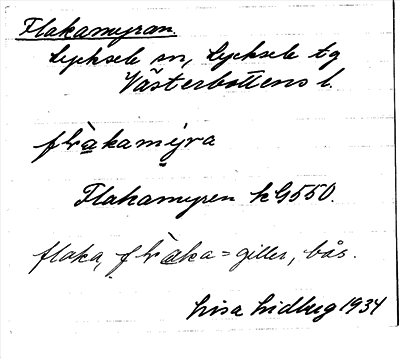 Flakamyran
Lycksele sn, Lycksele tg
Västerbottens l.
Flakamyren kG550.
flaka, = giller, bås.
Lisa Lidberg 1934